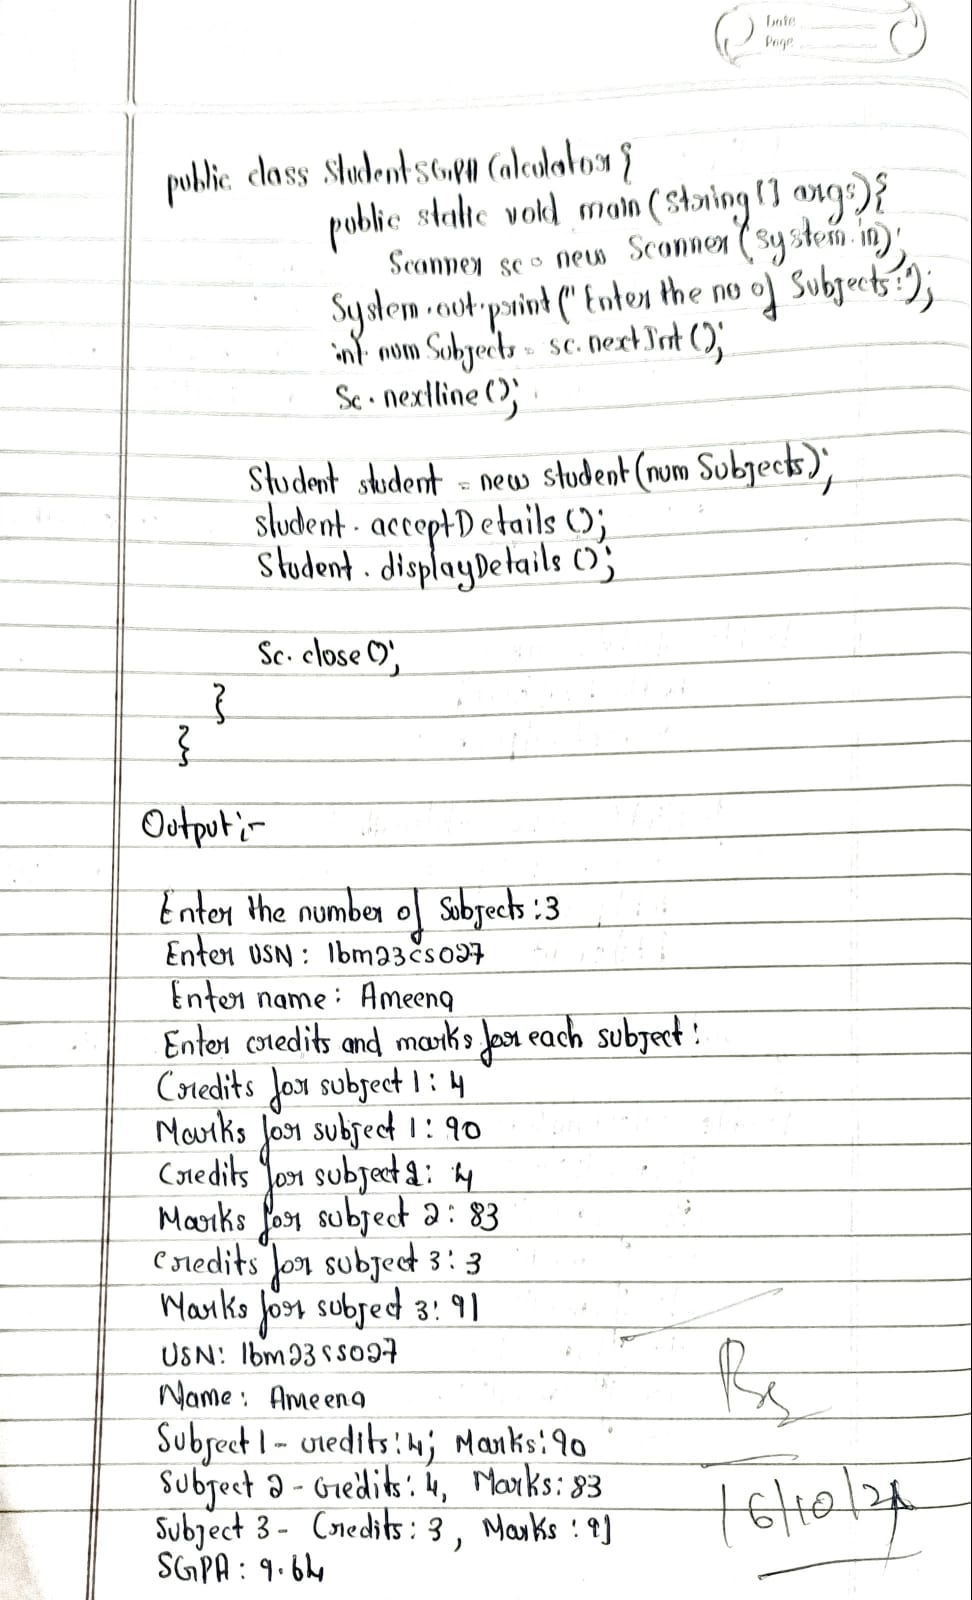 Date
Page
public class StudentSGPA Calculator {
public static void main (String [] args) {
Scanner sc = new Scanner (system.in);
System.out.print ("Enter the no of Subjects:");
int num Subjects = sc.nextInt ();
Sc.nextline ();
Student student = new student (num Subjects);
student.acceptDetails ();
Student.displayDetails ();
Sc.close ();
}
}
Output :-
Enter the number of Subjects : 3
Enter USN : 1bm23cs027
Enter name : Ameena
Enter credits and marks for each subject :
Credits for subject 1 : 4
Marks for subject 1 : 90
Credits for subject 2 : 4
Marks for subject 2 : 83
Credits for subject 3 : 3
Marks for subject 3 : 91
USN : 1bm23cs027
Name : Ameena
Subject 1 - credits : 4; Marks : 90
Subject 2 - Credits : 4, Marks : 83
Subject 3 - Credits : 3, Marks : 91
SGPA : 9.64
16/10/24